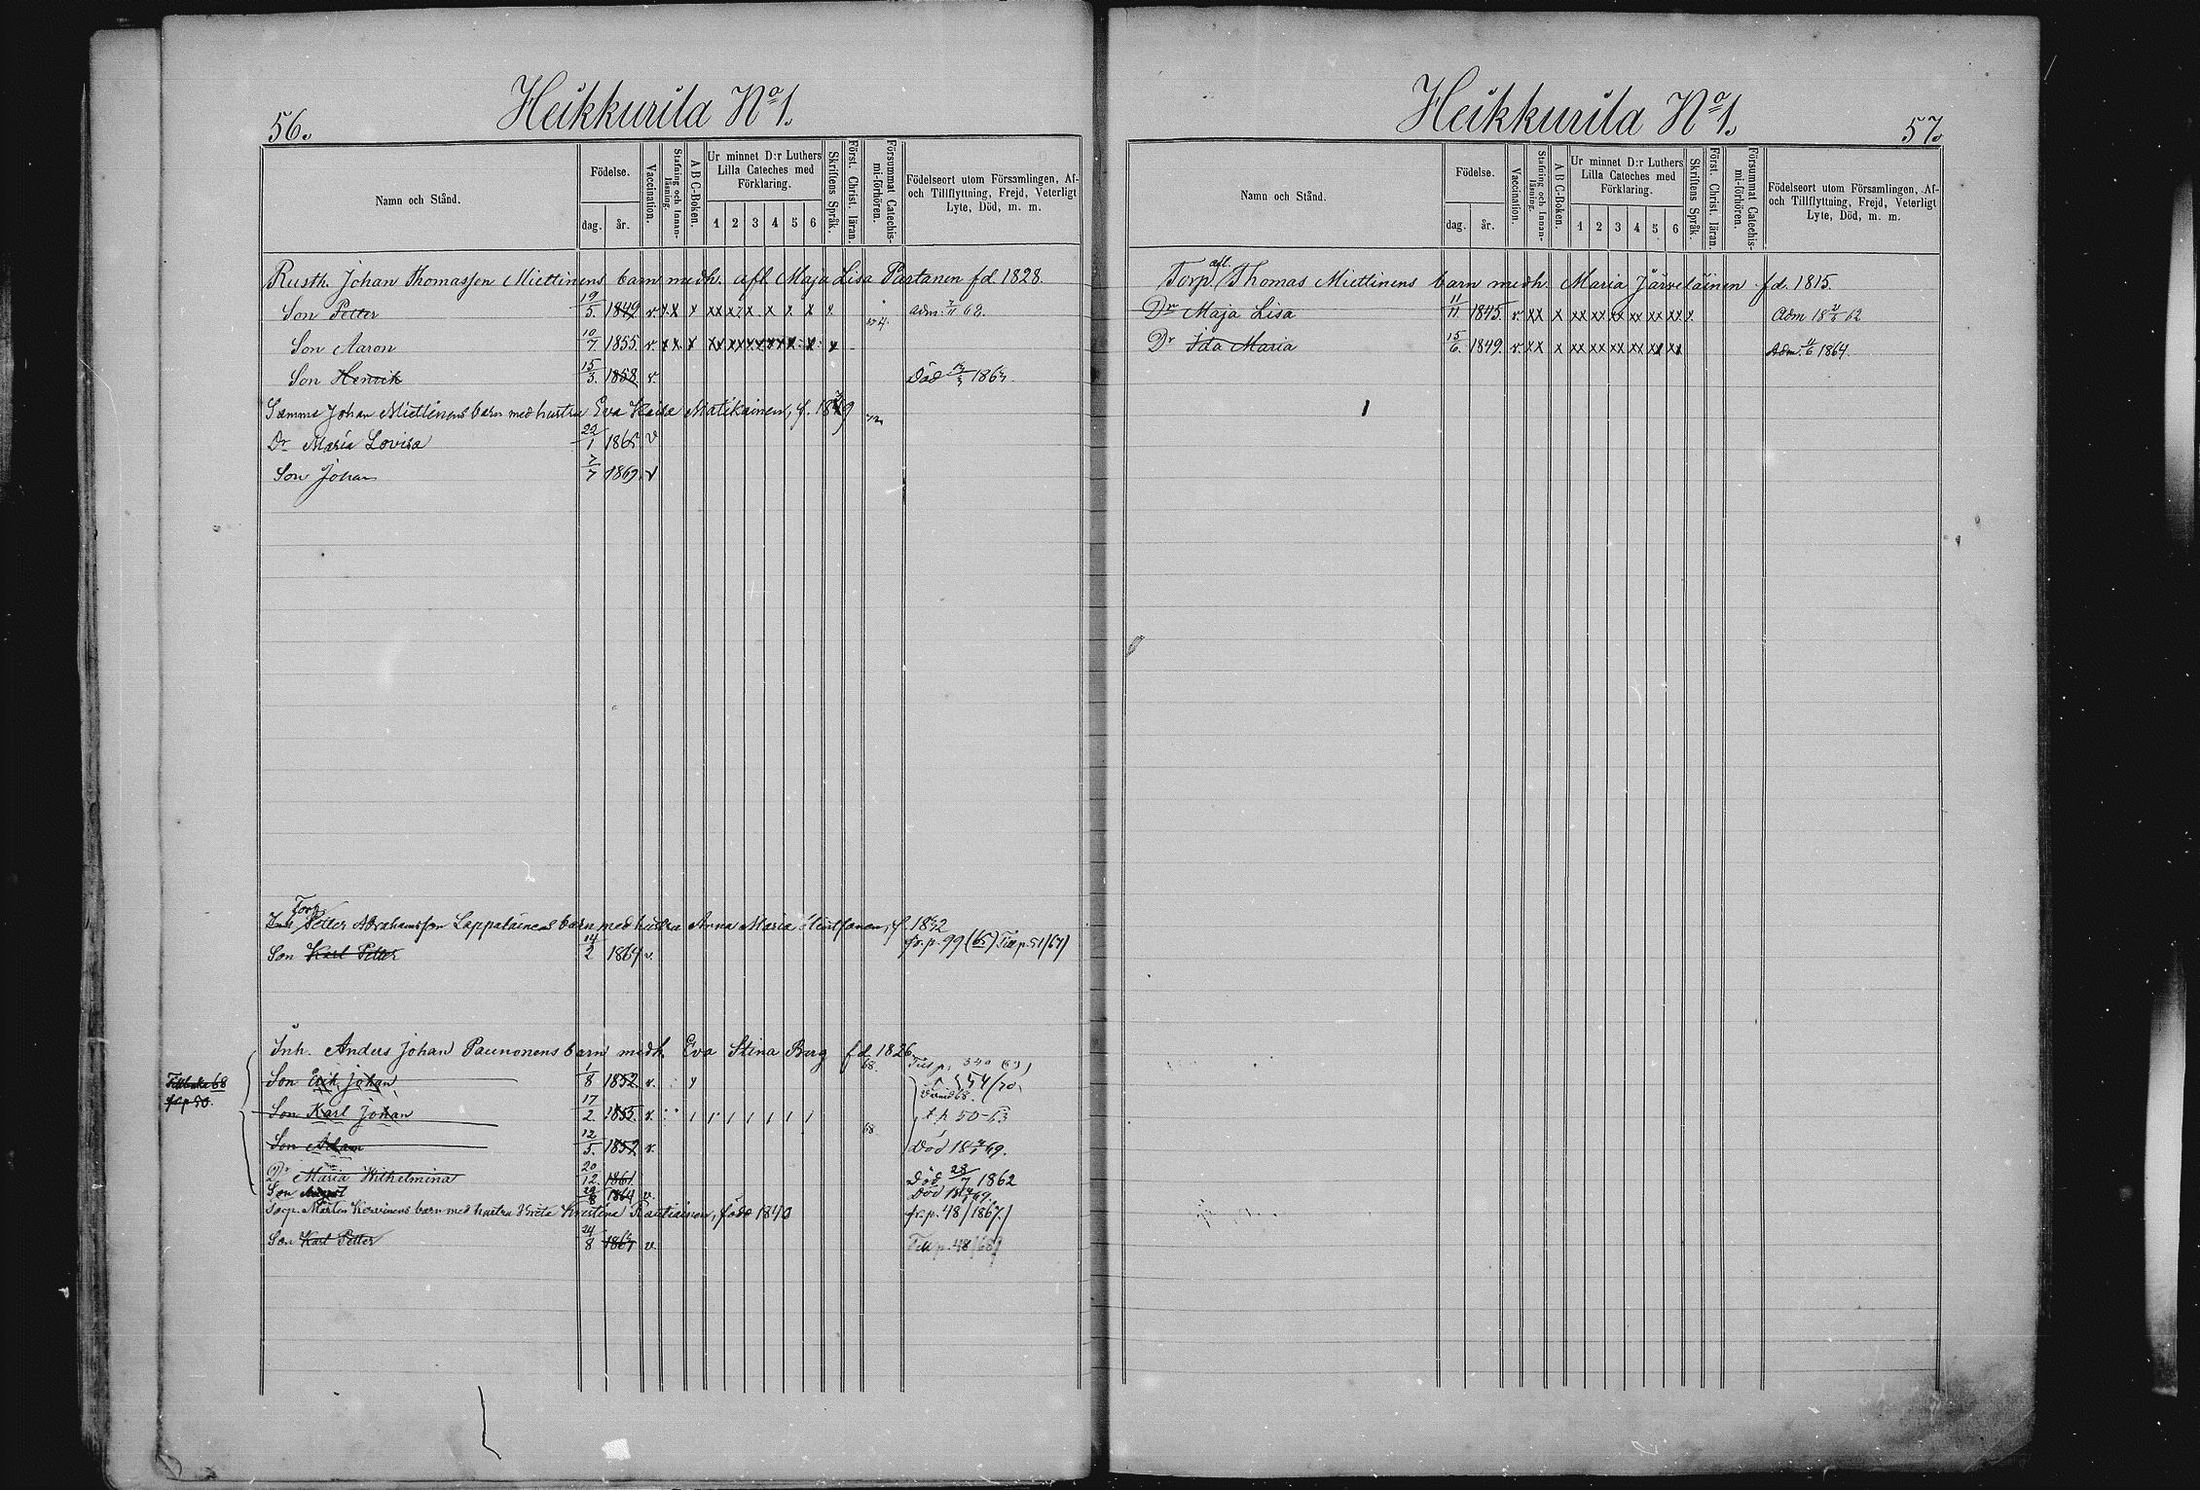 56.
Heikkurila No 1.
Namn och Stånd.
Födelse.
dag.
år.
Vaccination.
Stafning och Innan-läsning.
A B C-Boken.
Ur minnet D:r Luthers
Lilla Cateches med
Förklaring.
1 2 3 4 5 6
Skriftens Språk.
Först. Christ. läran.
Försummat Catechis-
mi-förhören.
Födelseort utom Församlingen, Af-
och Tillflyttning, Frejd, Veterligt
Lyte, Död, m. m.
Rusth. Johan Thomasson Miettinens barn medh. afl. Maja Lisa Partanen fd 1828.
Son Petter 19/5 1849 v. x x x xx xx x x x x x adm. 68.
Son Aaron 10/7 1855 v. x x x xx xx xx xx x x x
Son Henrik 15/3. 1858 v. Död 186
Samma Johan Miettinens barn med hustru Eva Kaisa Matikainen, f.
Dr Maria Lovisa 22/1 1865 v
Son Johan 7/7 1869 v
Torp. Petter Abrahamsson Lappalainens barn med hustru Anna Maria f. 1842
Son Karl Petter 14/2 1864 v. fr. p. 99 (65) Till p. 51/67/
Inh. Anders Johan Paunonens barn medh. Eva Stina Berg fd 1826
68.
Son Erik Johan 1/8 1852 v. 54/70
Son Karl Johan 17/2. 1855. v. t. p. 50-63
68
Son Adam 12/5. 1857 v. Död 69.
Dr Maria Wilhelmina 20/12 1861. Död 28/7 1862
Son August 1864 v. Död 69.
Torp. Mårten barn med hustru Greta Kristina Rautiainen, född 1840 fr. p. 48/1867/
Son Karl Petter 24/8 v. Till p. 48/68/
Heikkurila No 1.
57.
Namn och Stånd.
Födelse.
dag.
år.
Vaccination.
Stafning och Innan-läsning.
A B C-Boken.
Ur minnet D:r Luthers
Lilla Cateches med
Förklaring.
1 2 3 4 5 6
Skriftens Språk.
Först. Christ. läran.
Försummat Catechis-
mi-förhören.
Födelseort utom Församlingen, Af-
och Tillflyttning, Frejd, Veterligt
Lyte, Död, m. m.
Torp. afl. Thomas Miettinens barn medh. Maria Järveläinen fd. 1815.
Dr Maja Lisa 11/11 1845. v. xx x xx xx xx xx xx xx x. Adm 18 62
Dr Ida Maria 15/6. 1849. v. xx x xx xx xx xx xx xx Adm. 1864.